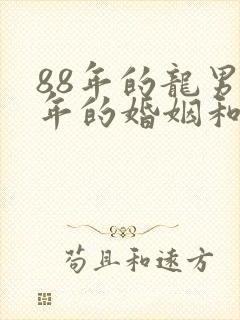 88年的龍男
年的婚姻和
苟且和遠方